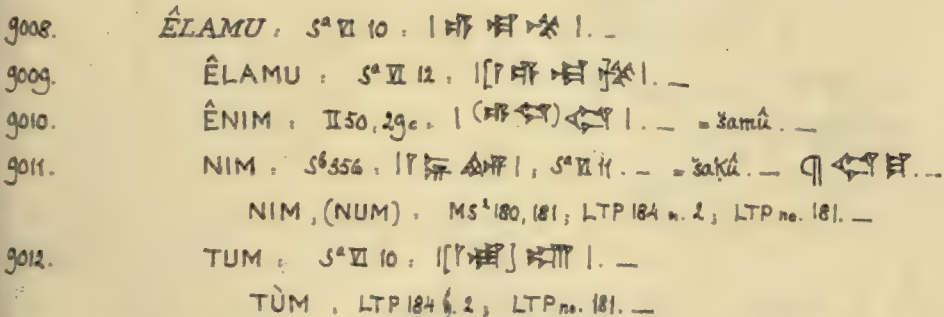 9008. ÊLAMU : Sᵃ VI 10 : | 𒂊 𒆷 𒈬 | . —
9009. ÊLAMU : Sᵃ VI 12 : |[𒁹 𒂊 𒆷 𒈬]| . —
9010. ÊNIM : II 50, 29c : | (𒂊 𒉏) 𒉏 | . — = šamû . —
9011. NIM : Sᵇ 356 : |𒁹 | ; Sᵃ VI 11 . — = šaḳû . — ¶ 𒉏 . —
NIM , (NUM) : MS¹ 180, 181 ; LTP 184 n. 2 ; LTP no. 181. —
9012. TUM : Sᵃ VI 10 : |[𒁹 ] | . —
TÙM , LTP 184 2 ; LTP no. 181. —